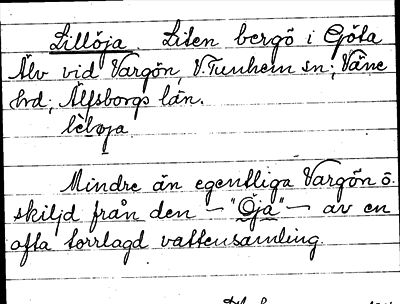 Lillöja. Liten bergö i Göta
Älv vid Vargön, V. Tunhem sn; Väne
hrd; Älfsborgs län.
lèløja
Mindre än egentliga Vargön ö.
skiljd från den — "Öja" — av en
ofta torrlagd vattensamling.